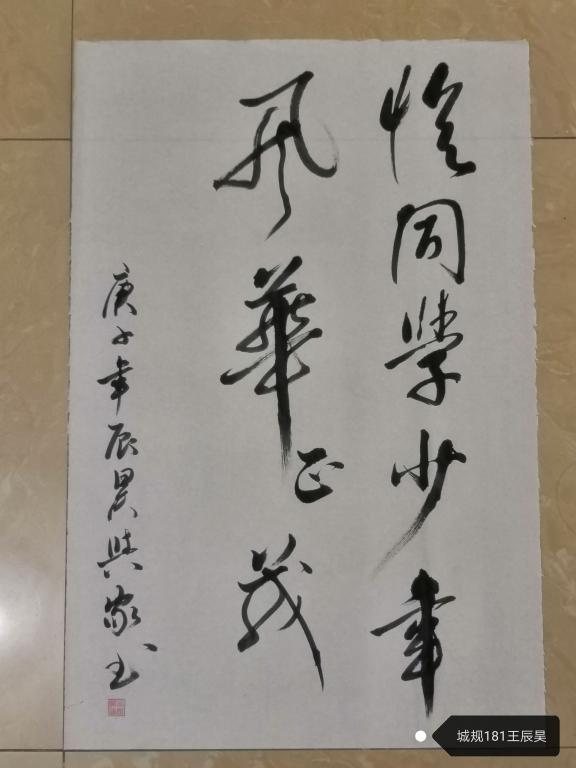 恰同學少年
风華正茂
庚子年辰昊與家书
城规181王辰昊